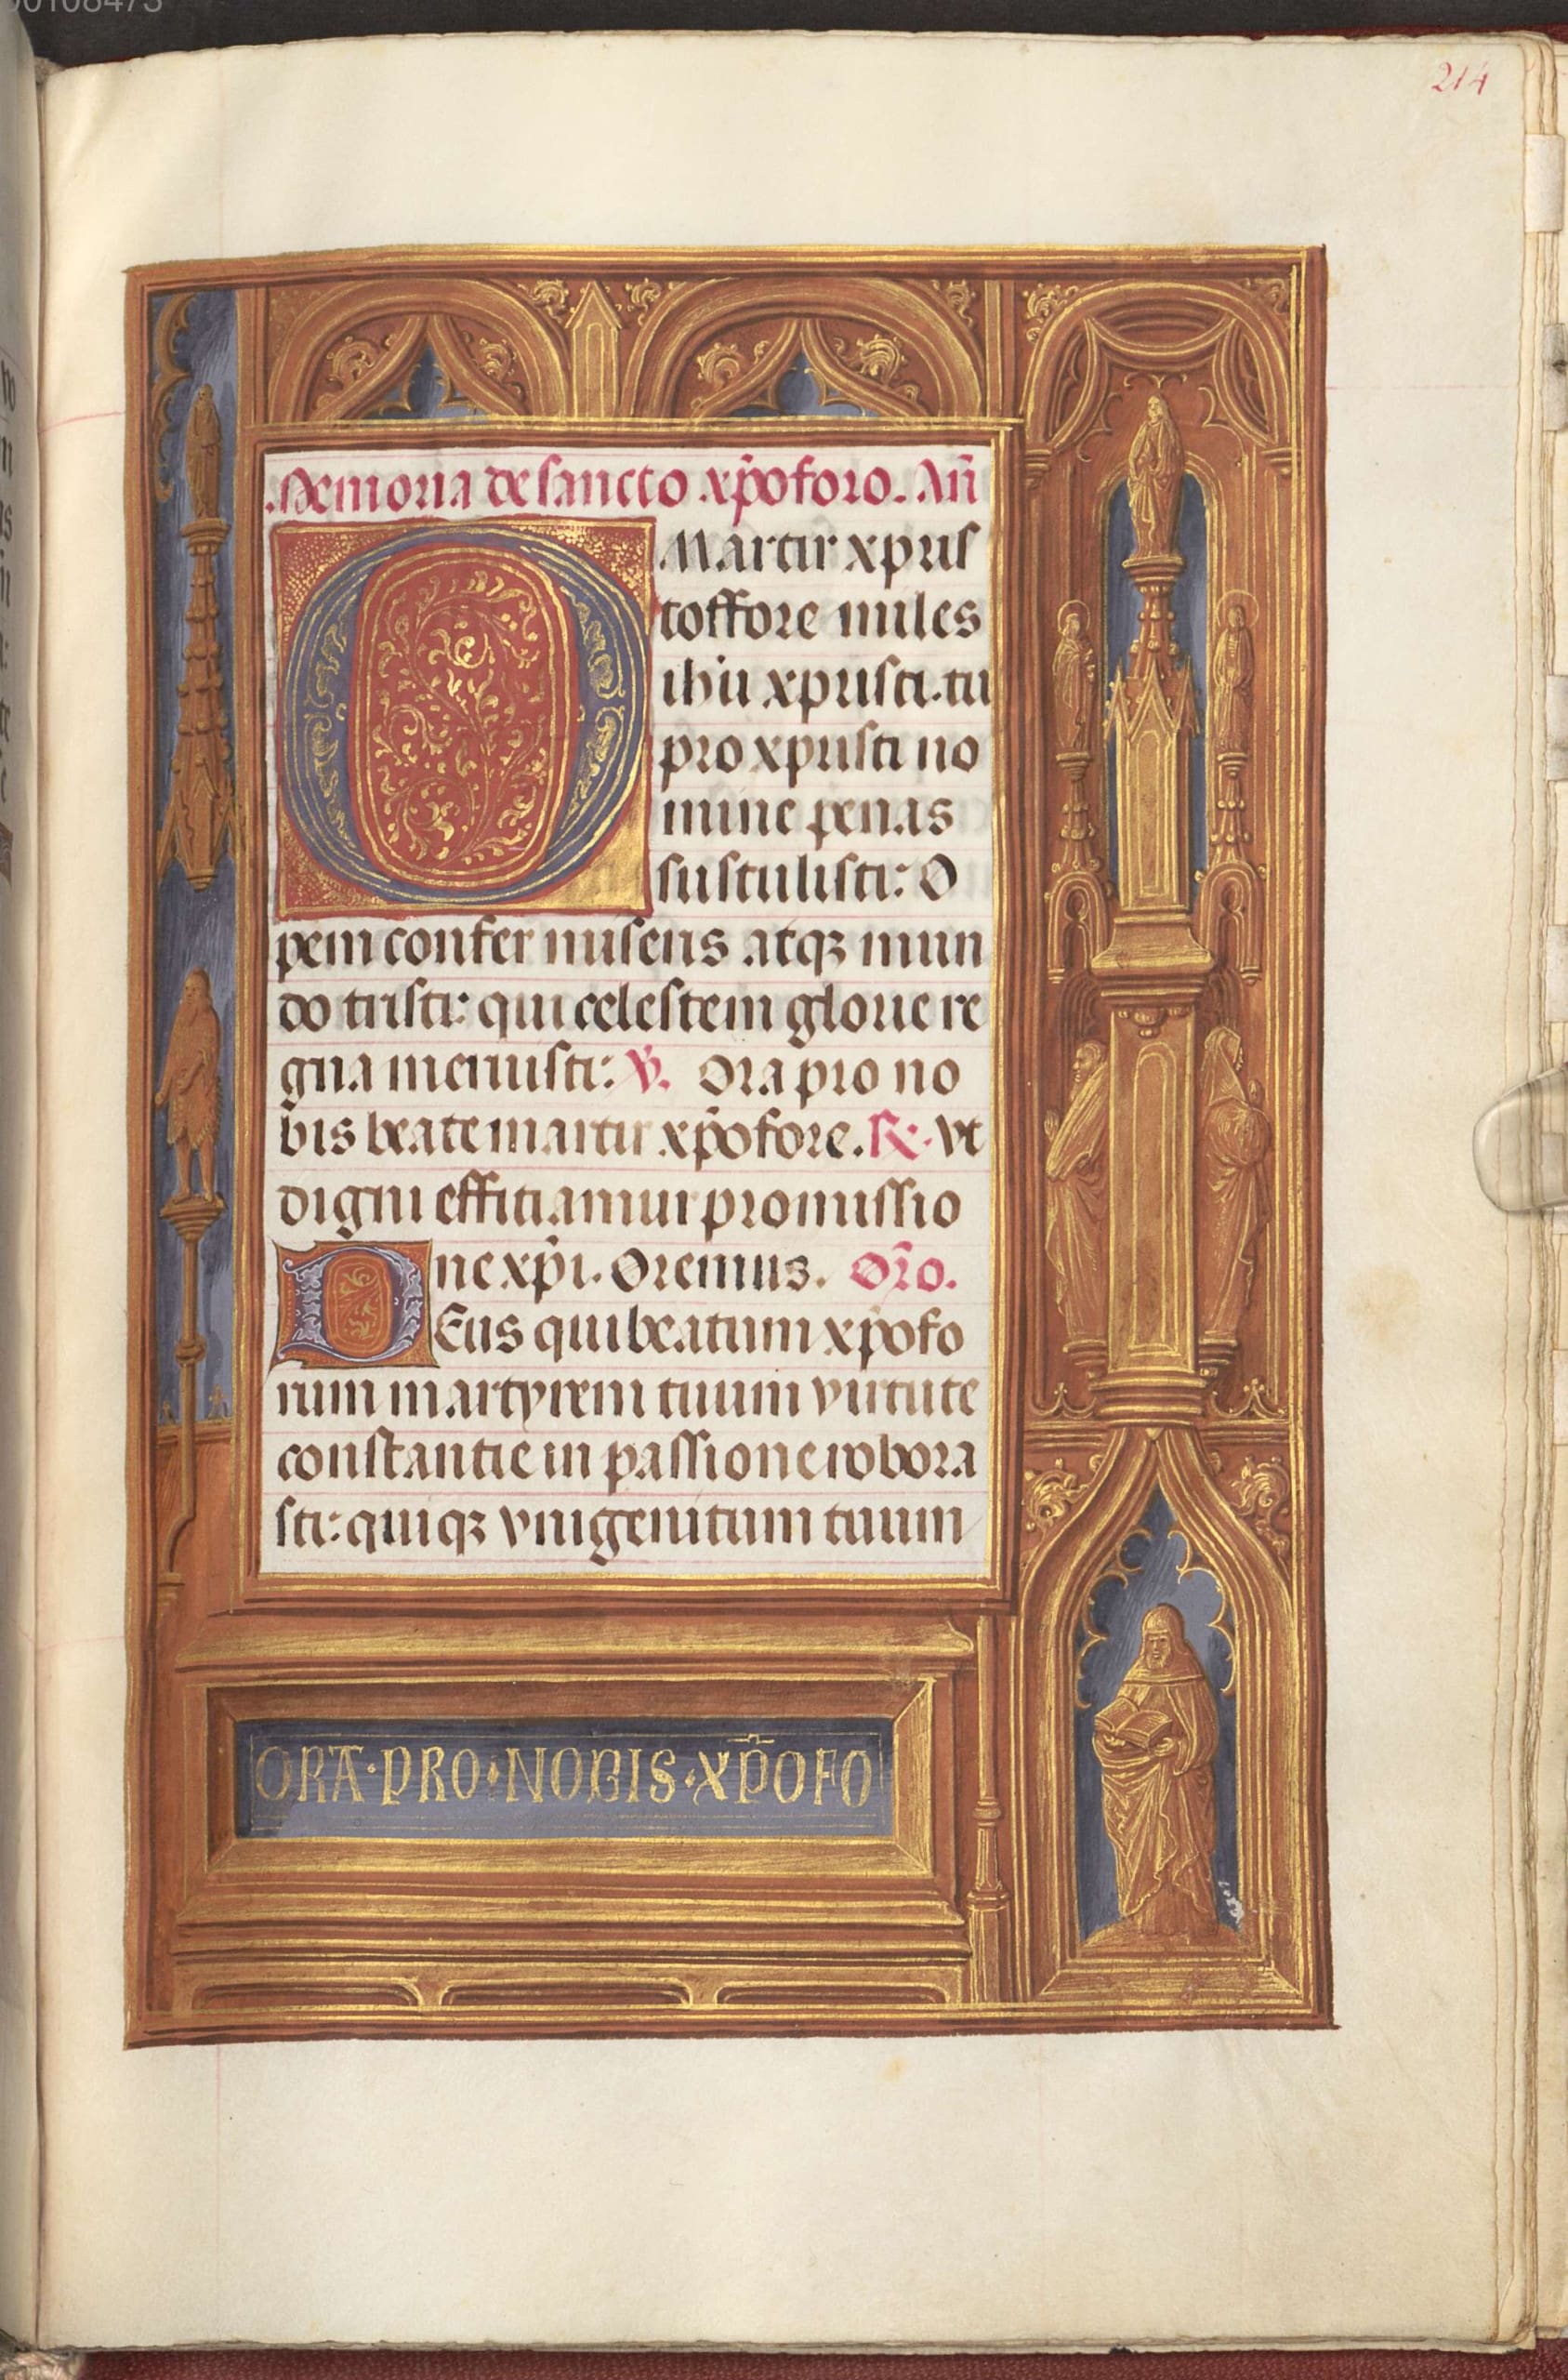 214
Memoria de sancto xp̄oforo. An̄
O Martir xpris
toffore miles
ihū xpristi. tu
pro xpristi no
mine penas
sustulisti: O
pem confer miseris atqꝫ mun
do tristi: qui celestem glorie re
gna meruisti: ℣. Ora pro no
bis beate martir xp̄ofore. ℟. vt
digni efficiamur promissio
ne xp̄i. Oremus. Or̄o.
DEus qui beatum xp̄ofo
rum martyrem tuum virtute
constantie in passione robora
sti: quiqꝫ vnigenitum tuum
ORA·PRO·NOBIS·XP̄OFO